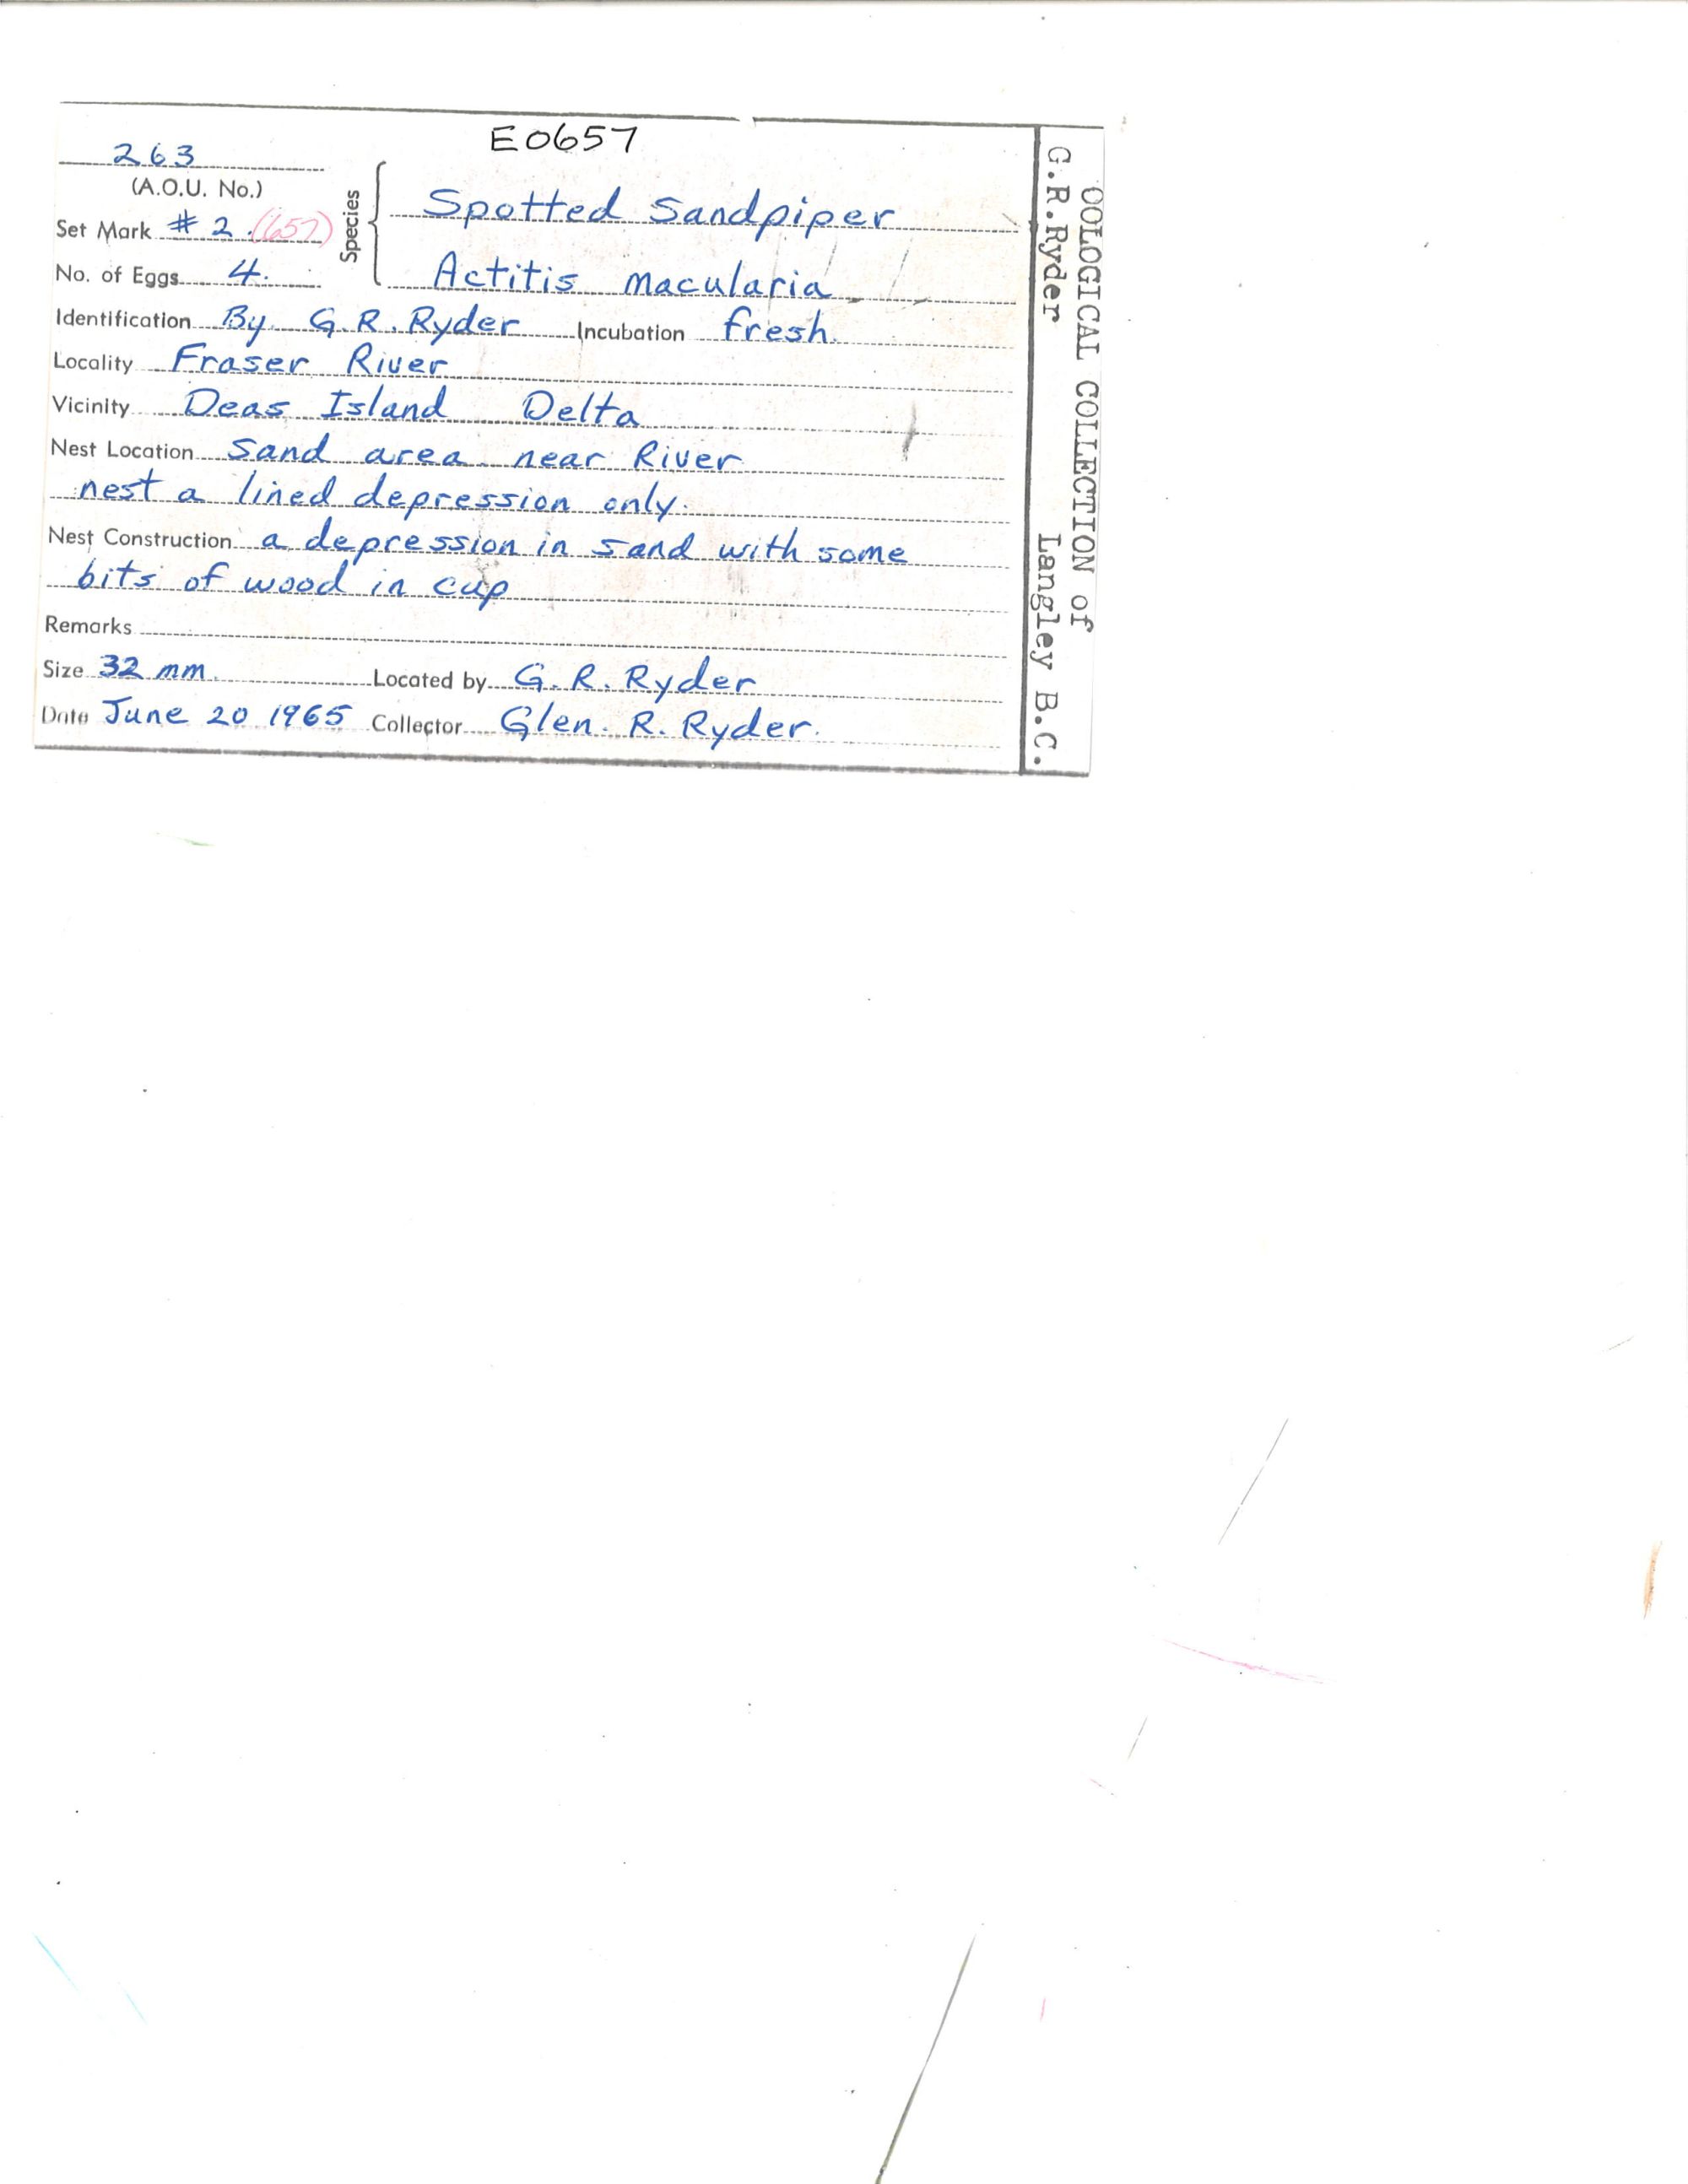 E0657
263
(A.O.U. No.)
Set Mark # 2. (657)
No. of Eggs 4.
Species
Spotted Sandpiper
Actitis macularia
Identification By G.R. Ryder Incubation fresh.
Locality Fraser River
Vicinity Deas Island Delta
Nest Location Sand area near River
nest a lined depression only.
Nest Construction a depression in sand with some
bits of wood in cup
Remarks
Size 32 mm. Located by G. R. Ryder
Date June 20 1965 Collector Glen. R. Ryder.
OOLOGICAL COLLECTION of
G.R.Ryder Langley B.C.